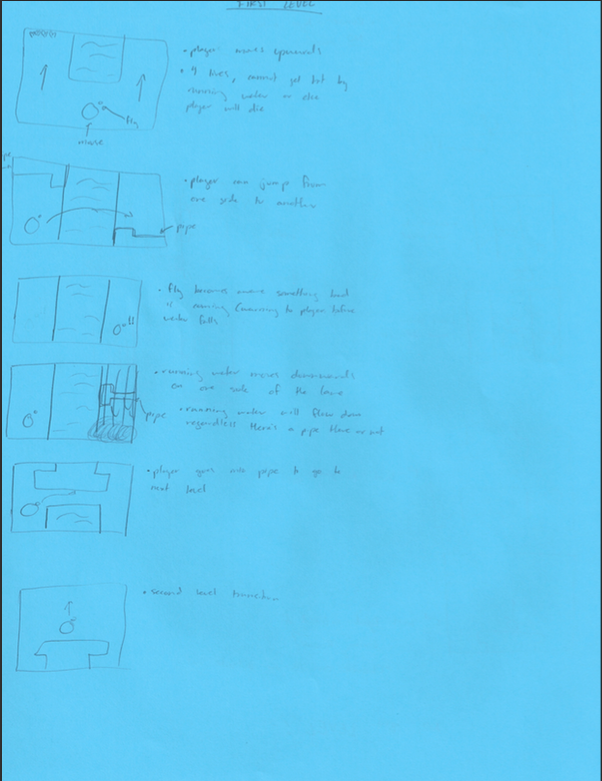 FIRST LEVEL
• player moves upwards
• 4 lives, cannot get hit by
running water or else
player will die
fly
mouse
• player can jump from
one side to another
pipe
• fly becomes aware something bad
is coming (warning to player before
water falls
• running water moves downwards
on one side of the lane
• running water will flow down
regardless there's a pipe there or not
pipe
• player goes into pipe to go to
next level
• second level transition